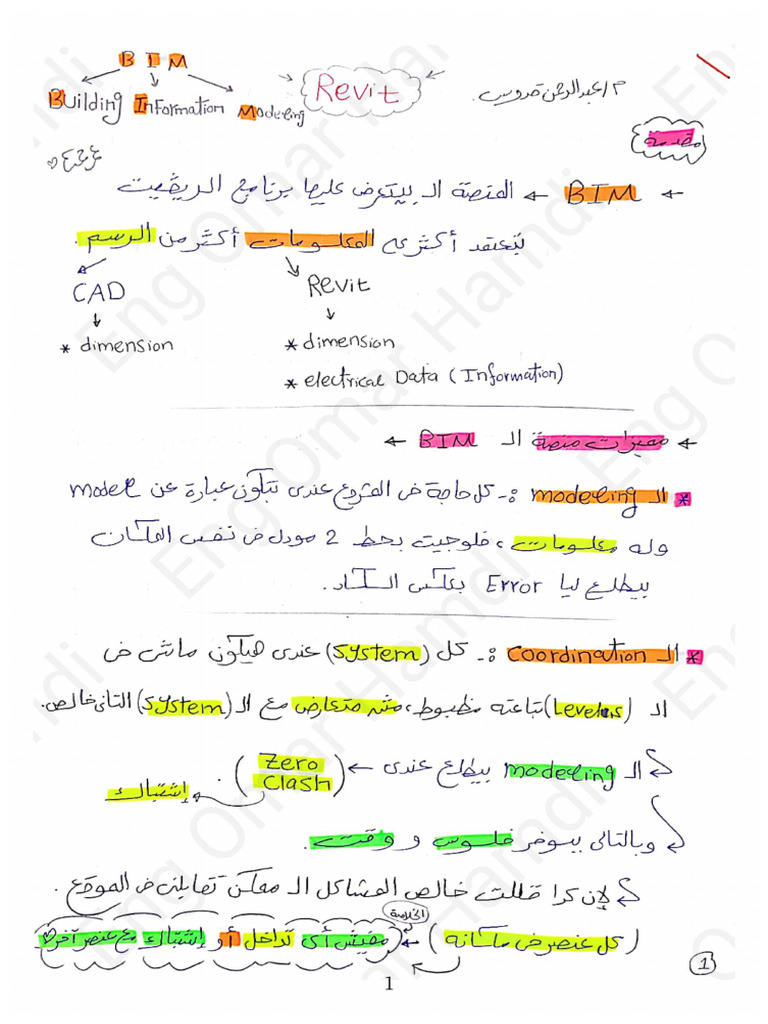 B I M
Building Information Modeling
Revit
م/عبدالرحمن قدوس.
مقدمة
← BIM ← المنصة الـ بيتعرض عليها برنامج الريڤيت
بتعتمد أكتر على المعلومات أكتر من الرسم.
CAD
Revit
* dimension
* dimension
* electrical Data (Information)
← مميزات منصة الـ BIM ←
* الـ modeling :- كل حاجة فى المشروع عندى بتكون عبارة عن model
وله معلومات، فلو جيت بحط 2 مودل فى نفس المكان
بيطلع ليا Error بعكس الكاد.
* الـ coordination :- كل (system) عندى هيكون ماشى فى
الـ (Levels) بتاعته مظبوط، مش متعارض مع الـ (system) التانى خالص.
الـ modeling بيطلع عندى ← (Zero Clash).
إشتباك
وبالتالى بيوفر فلوس و وقت.
لإن كدا قللت خالص المشاكل الـ ممكن تقابلنى فى الموقع.
الخلاصة
(كل عنصر فى مكانه) ← (مفيش أى تداخل أو إشتباك مع عنصر آخر)
1
1
Eng Omar Hamdi